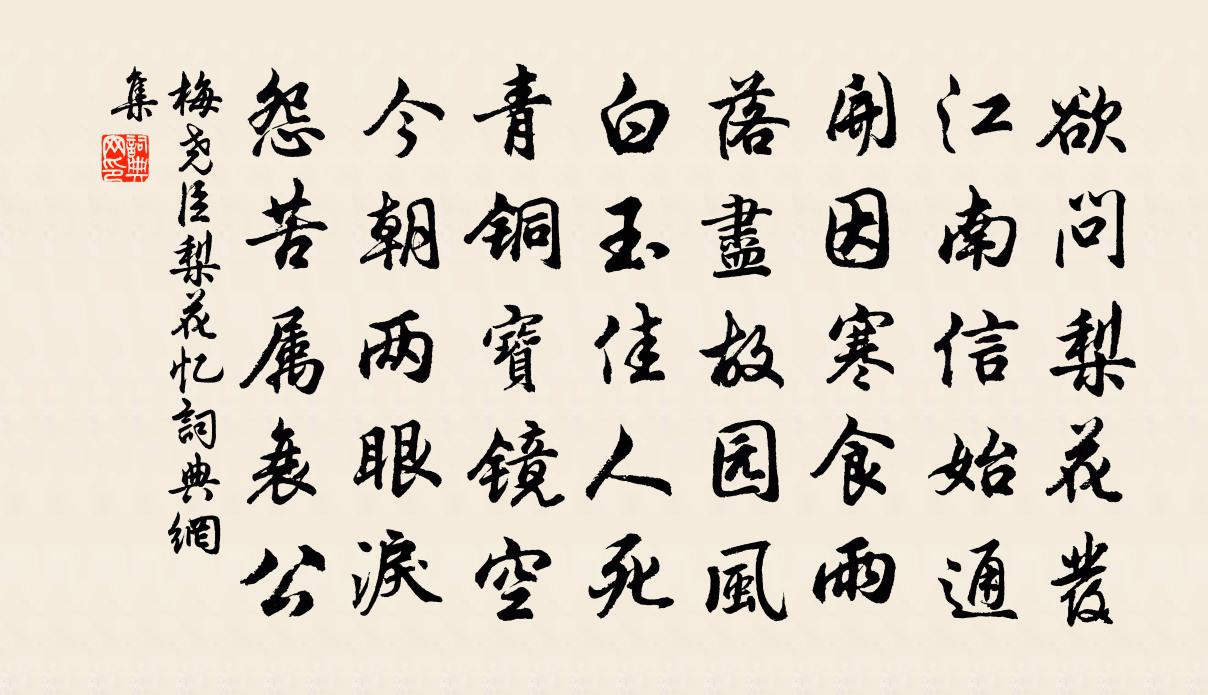 欲問梨花發
江南信始通
開因寒食雨
落盡故园風
白玉佳人死
青銅寶鏡空
今朝两眼淚
怨苦属衰公
梅尧臣梨花忆詞典網
集
詞典
网印